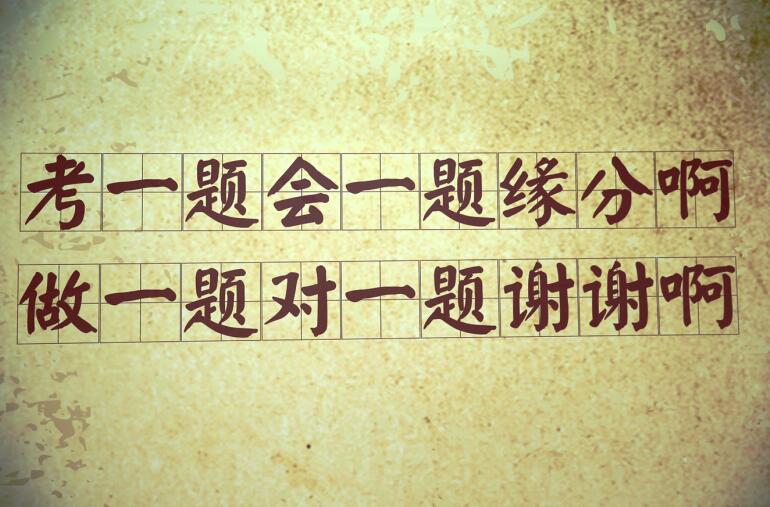 考一题会一题缘分啊
做一题对一题谢谢啊